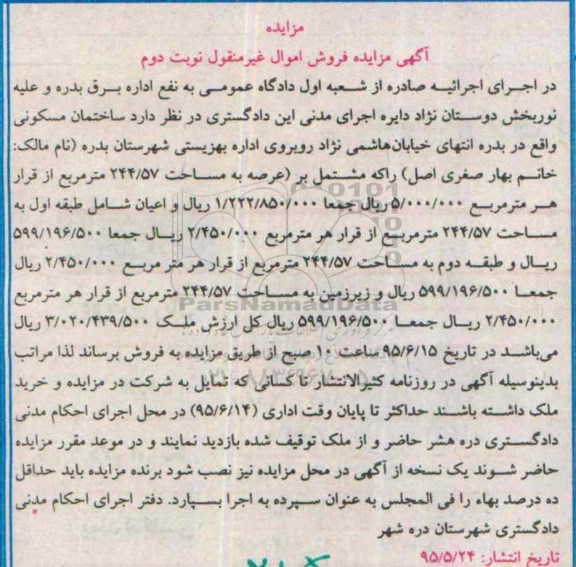 مزایده
آگهی مزایده فروش اموال غیرمنقول نوبت دوم
در اجرای اجرائیه صادره از شعبه اول دادگاه عمومی به نفع اداره برق بدره و علیه
نوربخش دوستان نژاد دایره اجرای مدنی این دادگستری در نظر دارد ساختمان مسکونی
واقع در بدره انتهای خیابان‌هاشمی نژاد روبروی اداره بهزیستی شهرستان بدره (نام مالک:
خانم بهار صفری اصل) راکه مشتمل بر (عرصه به مساحت ۲۴۴/۵۷ مترمربع از قرار
هر مترمربع ۵/۰۰۰/۰۰۰ ریال جمعا ۱/۲۲۲/۸۵۰/۰۰۰ ریال و اعیان شامل طبقه اول به
مساحت ۲۴۴/۵۷ مترمربع از قرار هر مترمربع ۲/۴۵۰/۰۰۰ ریال جمعا ۵۹۹/۱۹۶/۵۰۰
ریال و طبقه دوم به مساحت ۲۴۴/۵۷ مترمربع از قرار هر متر مربع ۲/۴۵۰/۰۰۰ ریال
جمعا ۵۹۹/۱۹۶/۵۰۰ ریال و زیرزمین به مساحت ۲۴۴/۵۷ مترمربع از قرار هر مترمربع
۲/۴۵۰/۰۰۰ ریال جمعا ۵۹۹/۱۹۶/۵۰۰ ریال کل ارزش ملک ۳/۰۲۰/۴۳۹/۵۰۰ ریال
می‌باشد در تاریخ ۹۵/۶/۱۵ ساعت ۱۰ صبح از طریق مزایده به فروش برساند لذا مراتب
بدینوسیله آگهی در روزنامه کثیرالانتشار تا کسانی که تمایل به شرکت در مزایده و خرید
ملک داشته باشند حداکثر تا پایان وقت اداری (۹۵/۶/۱۴) در محل اجرای احکام مدنی
دادگستری دره هشر حاضر و از ملک توقیف شده بازدید نمایند و در موعد مقرر مزایده
حاضر شوند یک نسخه از آگهی در محل مزایده نیز نصب شود برنده مزایده باید حداقل
ده درصد بهاء را فی المجلس به عنوان سپرده به اجرا بسپارد. دفتر اجرای احکام مدنی
دادگستری شهرستان دره شهر
تاریخ انتشار: ۹۵/۵/۲۴
ParsNamadData